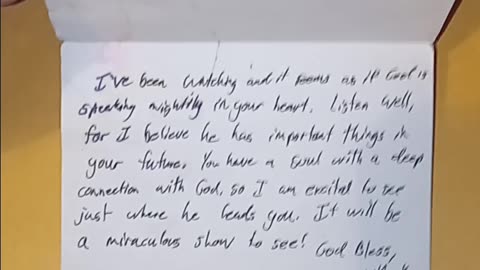 I've been watching and it seems as if God is
speaking mightily in your heart. Listen well,
for I believe he has important things in
your future. You have a soul with a deep
connection with God, so I am excited to see
just where he leads you. It will be
a miraculous show to see! God Bless,